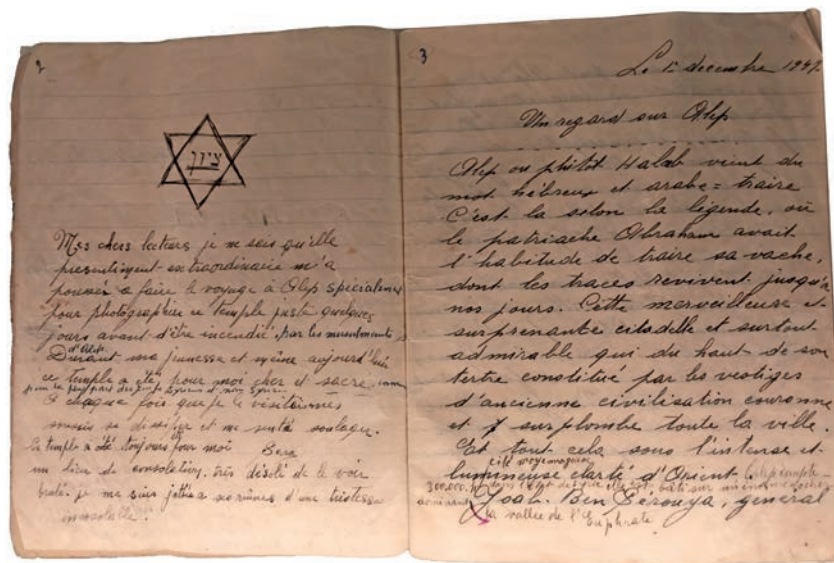 2
ציון
Mes chers lecteurs je ne sais qu'elle
presentiment extraordinaire m'a
poussé a faire le voyage à Alep spécialement
pour photographier ce temple juste quelques
jours avant d'être incendié, par les musulmants
d'Alep
Durant ma jeunesse et même aujourd'hui
ce temple a été pour moi cher et sacré
A chaque fois que je le visite mes
soucis se dissipe et me sente soulager.
Ce temple à été toujours pour moi
un lieu de consolation, très désolé de le voir
brulé, je me suis jetté a ses ruines d'une tristesse
inconsolable!
3
Le 1 decembre 1947
Un regard sur Alep
Alep ou plutôt Halab vient du
mot hébreux et arabe = traire
C'est la selon la légende, où
le patriache Abraham avait
l'habitude de traire sa vache,
dont les traces revivent jusqu'a
nos jours. Cette merveilleuse et
surprenante citadelle et surtout
admirable qui du haut de son
tertre constitué par les vestiges
d'ancienne civilisation couronne
et surplombe toute la ville.
Est tout cela sous l'intense et
lumineuse clarté d'Orient.
300.000 elle est bâti sur
Joab. Ben Sérouya, général
la vallée de l'Euphrate